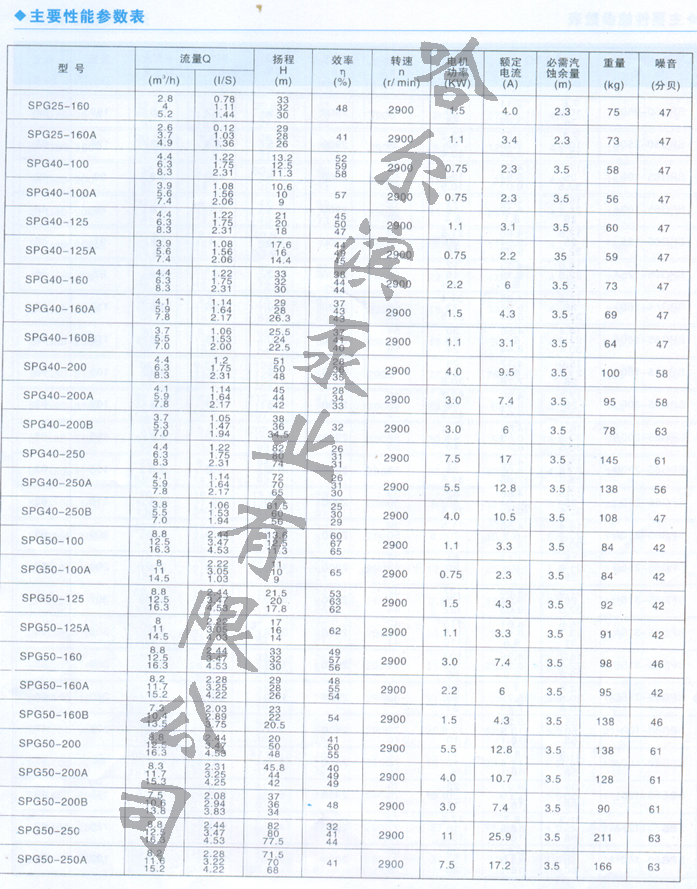 ◆主要性能参数表
型号 流量Q (m³/h) (l/S) 扬程 H (m) 效率 η (%) 转速 n (r/min) 电机功率 (KW) 额定电流 (A) 必需汽蚀余量 (m) 重量 (kg) 噪音 (分贝)
SPG25-160 2.8 4 5.2 0.78 1.11 1.44 33 32 30 48 2900 1.5 4.0 2.3 75 47
SPG25-160A 2.6 3.7 4.9 0.12 1.03 1.36 29 28 26 41 2900 1.1 3.4 2.3 73 47
SPG40-100 4.4 6.3 8.3 1.22 1.75 2.31 13.2 12.5 11.3 52 59 58 2900 0.75 2.3 3.5 58 47
SPG40-100A 3.9 5.6 7.4 1.08 1.56 2.06 10.6 10 9 57 2900 0.75 2.3 3.5 56 47
SPG40-125 4.4 6.3 8.3 1.22 1.75 2.31 21 20 18 45 50 47 2900 1.1 3.1 3.5 60 47
SPG40-125A 3.9 5.6 7.4 1.08 1.56 2.06 17.6 16 14.4 44 49 45 2900 0.75 2.2 35 59 47
SPG40-160 4.4 6.3 8.3 1.22 1.75 2.31 33 32 30 38 44 44 2900 2.2 6 3.5 73 47
SPG40-160A 4.1 5.9 7.8 1.14 1.64 2.17 29 28 26.3 37 43 43 2900 1.5 4.3 3.5 69 47
SPG40-160B 3.7 5.5 7.0 1.06 1.53 2.00 25.5 24 22.5 37 41 40 2900 1.1 3.1 3.5 64 47
SPG40-200 4.4 6.3 8.3 1.2 1.75 2.31 51 50 48 35 2900 4.0 9.5 3.5 100 58
SPG40-200A 4.1 5.9 7.8 1.14 1.64 2.17 45 44 42 28 34 33 2900 3.0 7.4 3.5 95 58
SPG40-200B 3.7 5.3 7.0 1.05 1.47 1.94 38 36 34.5 32 2900 3.0 6 3.5 78 63
SPG40-250 4.4 6.3 8.3 1.22 1.75 2.31 82 80 74 26 31 31 2900 7.5 17 3.5 145 61
SPG40-250A 4.1 5.9 7.8 1.14 1.64 2.17 72 70 65 26 31 30 2900 5.5 12.8 3.5 138 56
SPG40-250B 3.8 5.5 7.0 1.06 1.53 1.94 61.5 60 56 25 30 29 2900 4.0 10.5 3.5 108 47
SPG50-100 8.8 12.5 16.3 2.44 3.47 4.53 13.6 12.5 11.3 60 67 65 2900 1.1 3.3 3.5 84 42
SPG50-100A 8 11 14.5 2.22 3.05 1.03 11 10 9 65 2900 0.75 2.3 3.5 84 42
SPG50-125 8.8 12.5 16.3 2.44 3.47 4.53 21.5 20 17.8 53 63 62 2900 1.5 4.3 3.5 92 42
SPG50-125A 8 11 14.5 2.22 3.05 4.03 17 16 14 62 2900 1.1 3.3 3.5 91 42
SPG50-160 8.8 12.5 16.3 2.44 3.47 4.53 33 32 30 49 57 56 2900 3.0 7.4 3.5 98 46
SPG50-160A 8.2 11.7 15.2 2.28 3.25 4.22 29 28 26 48 55 54 2900 2.2 6 3.5 95 42
SPG50-160B 7.3 10.4 13.5 2.03 2.89 3.75 23 22 20.5 54 2900 1.5 4.3 3.5 138 46
SPG50-200 8.8 12.5 16.3 2.44 3.47 4.53 20 50 48 41 50 55 2900 5.5 12.8 3.5 138 61
SPG50-200A 8.3 11.7 15.3 2.31 3.25 4.25 45.8 44 42 40 49 49 2900 4.0 10.7 3.5 128 61
SPG50-200B 7.5 10.6 13.8 2.08 2.94 3.83 37 36 34 48 2900 3.0 7.4 3.5 90 61
SPG50-250 8.8 12.5 16.3 2.44 3.47 4.53 82 80 77.5 32 41 44 2900 11 25.9 3.5 211 63
SPG50-250A 8.2 11.6 15.2 2.28 3.22 4.22 71.5 70 68 41 2900 7.5 17.2 3.5 166 63
哈尔滨泵业有限公司